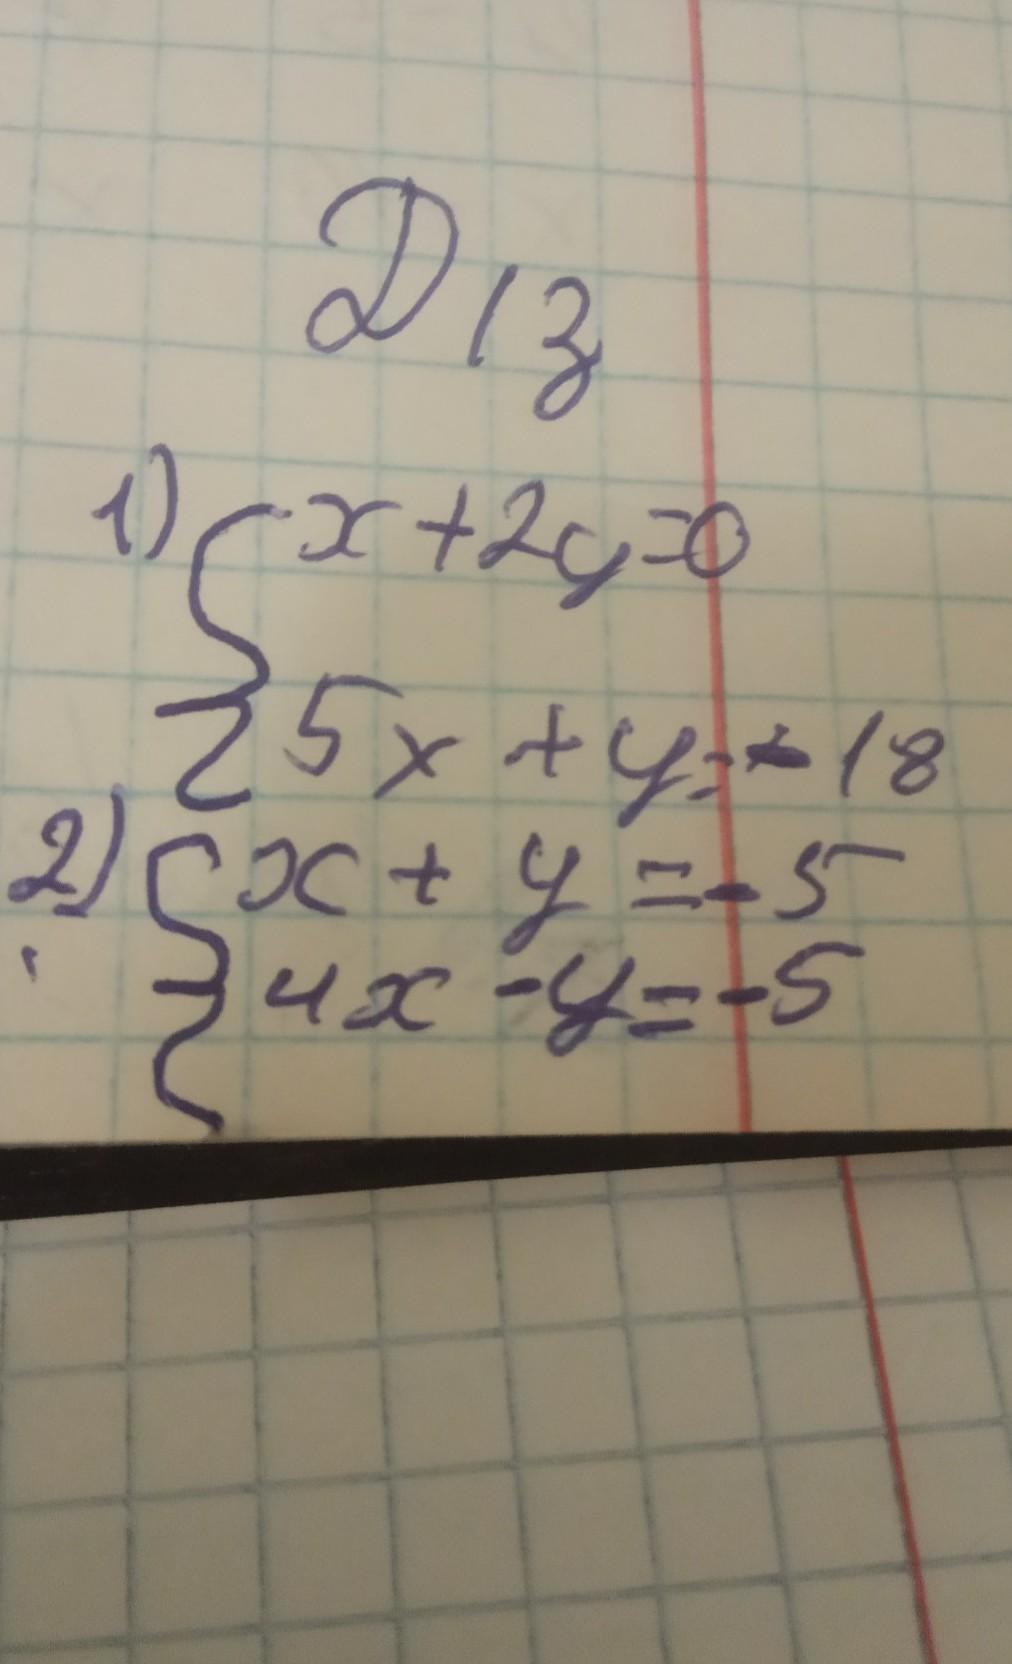 Д/з
1) { x + 2y = 0
5x + y = - 18
2) { x + y = - 5
4x - y = - 5